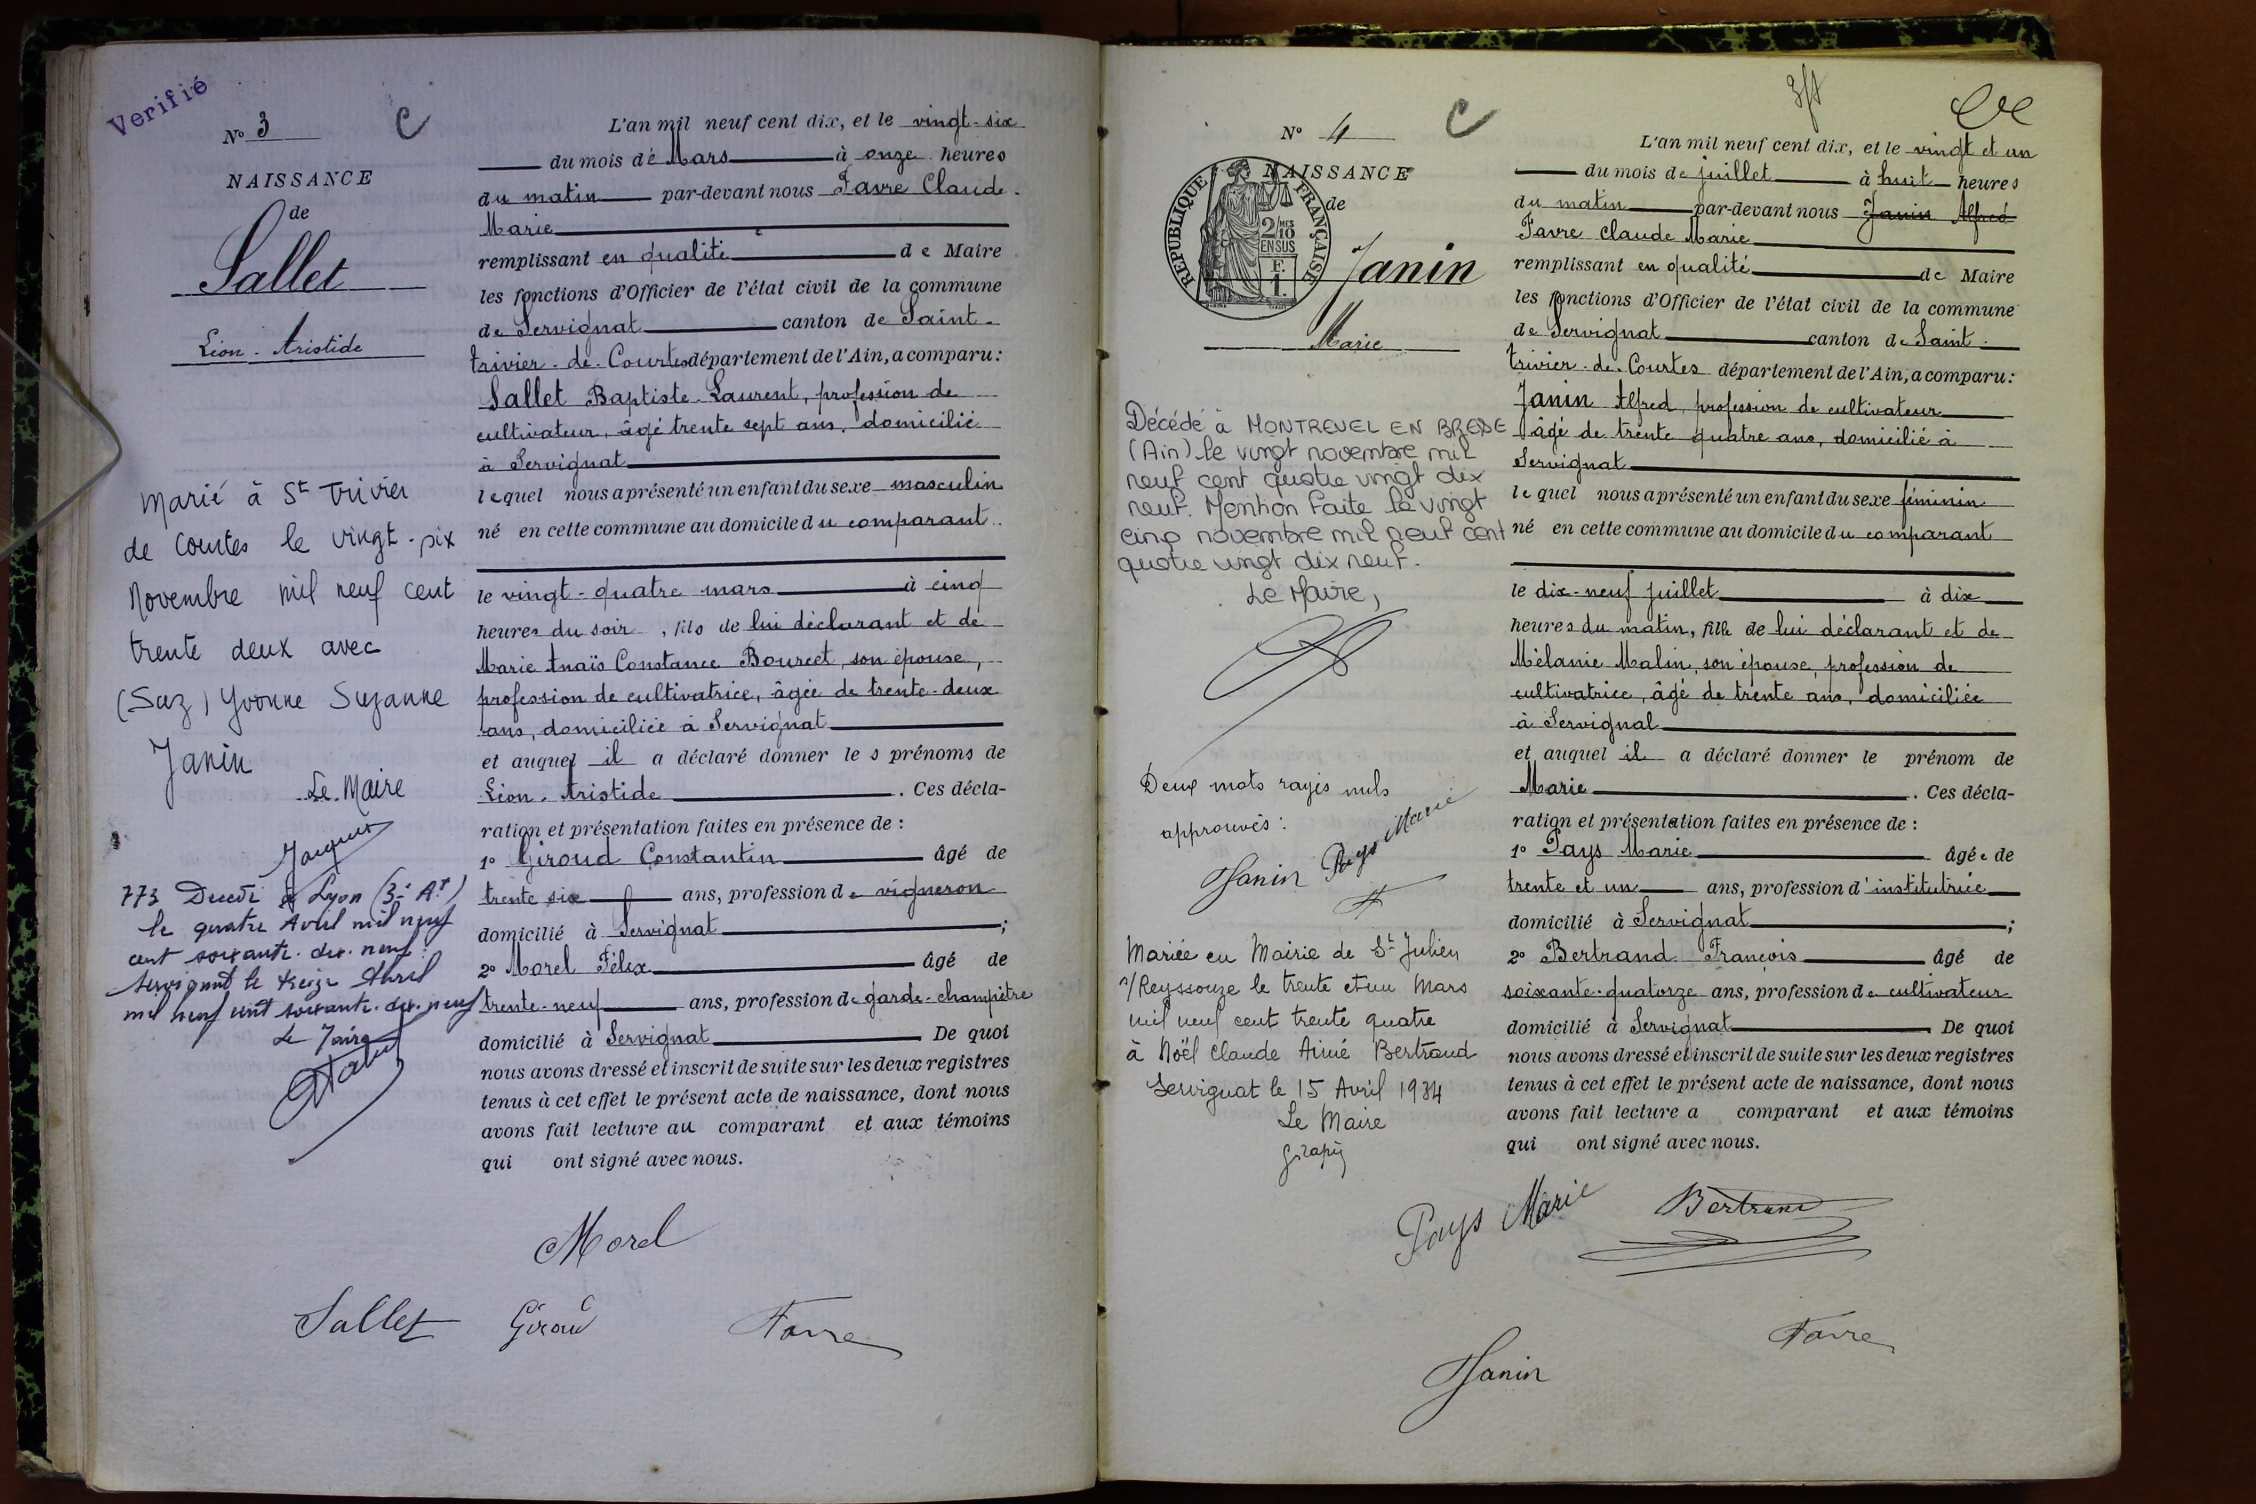 Verifié
N° 3
C
NAISSANCE
de
Sallet
Léon-Aristide
Marié à St Trivier
de Courtes le vingt-six
Novembre mil neuf cent
trente deux avec
(Suz) Yvonne Suzanne
Janin
Le Maire
773 Décédé à Lyon (3e Art)
le quatre Avril mil neuf
cent soixante-dix-neuf.
Servignat le treize Avril
mil neuf cent soixante-dix-neuf
Le Maire
L'an mil neuf cent dix, et le vingt-six
du mois de Mars à onze heures
du matin par-devant nous Favre Claude
Marie
remplissant en qualité de Maire
les fonctions d'Officier de l'état civil de la commune
de Servignat canton de Saint-
trivier-de-Courtes département de l'Ain, a comparu:
Sallet Baptiste-Laurent, profession de
cultivateur, âgé trente sept ans, domicilié
à Servignat
lequel nous a présenté un enfant du sexe masculin
né en cette commune au domicile du comparant
le vingt-quatre mars à cinq
heures du soir, fils de lui déclarant et de
Marie Anaïs Constance Bourcet, son épouse,
profession de cultivatrice, âgée de trente-deux
ans, domiciliée à Servignat
et auquel il a déclaré donner les prénoms de
Léon-Aristide. Ces décla-
ration et présentation faites en présence de :
1° Giroud Constantin âgé de
trente six ans, profession de vigneron
domicilié à Servignat;
2° Morel Félix âgé de
trente-neuf ans, profession de garde-champêtre
domicilié à Servignat De quoi
nous avons dressé et inscrit de suite sur les deux registres
tenus à cet effet le présent acte de naissance, dont nous
avons fait lecture au comparant et aux témoins
qui ont signé avec nous.
Morel
Sallet Giroud Favre
N° 4
C
NAISSANCE
de
REPUBLIQUE FRANÇAISE
2/10 MES
EN SUS
F.
1.
Janin
Marie
Décédé à MONTREVEL EN BRESSE
(Ain) le vingt novembre mil
neuf cent quatre vingt dix
neuf. Mention faite le vingt
cinq novembre mil neuf cent
quatre vingt dix neuf.
Le Maire,
Deux mots rayés nuls
approuvés:
Janin Pays Marie
Mariée en Mairie de St Julien
s/Reyssouze le trente et un Mars
mil neuf cent trente quatre
à Noël Claude Aimé Bertrand
Servignat le 15 Avril 1934
Le Maire
L'an mil neuf cent dix, et le vingt et un
du mois de juillet à huit heures
du matin par-devant nous Janin Alfred
Favre Claude Marie
remplissant en qualité de Maire
les fonctions d'Officier de l'état civil de la commune
de Servignat canton de Saint-
trivier-de-Courtes département de l'Ain, a comparu:
Janin Alfred, profession de cultivateur
âgé de trente quatre ans, domicilié à
Servignat
lequel nous a présenté un enfant du sexe féminin
né en cette commune au domicile du comparant
le dix-neuf juillet à dix
heures du matin, fille de lui déclarant et de
Mélanie Malin, son épouse, profession de
cultivatrice, âgé de trente ans, domiciliée
à Servignat
et auquel il a déclaré donner le prénom de
Marie. Ces décla-
ration et présentation faites en présence de :
1° Pays Marie âgée de
trente et un ans, profession d'institutrice
domicilié à Servignat;
2° Bertrand François âgé de
soixante-quatorze ans, profession de cultivateur
domicilié à Servignat De quoi
nous avons dressé et inscrit de suite sur les deux registres
tenus à cet effet le présent acte de naissance, dont nous
avons fait lecture a comparant et aux témoins
qui ont signé avec nous.
Pays Marie Bertrand
Favre
Janin